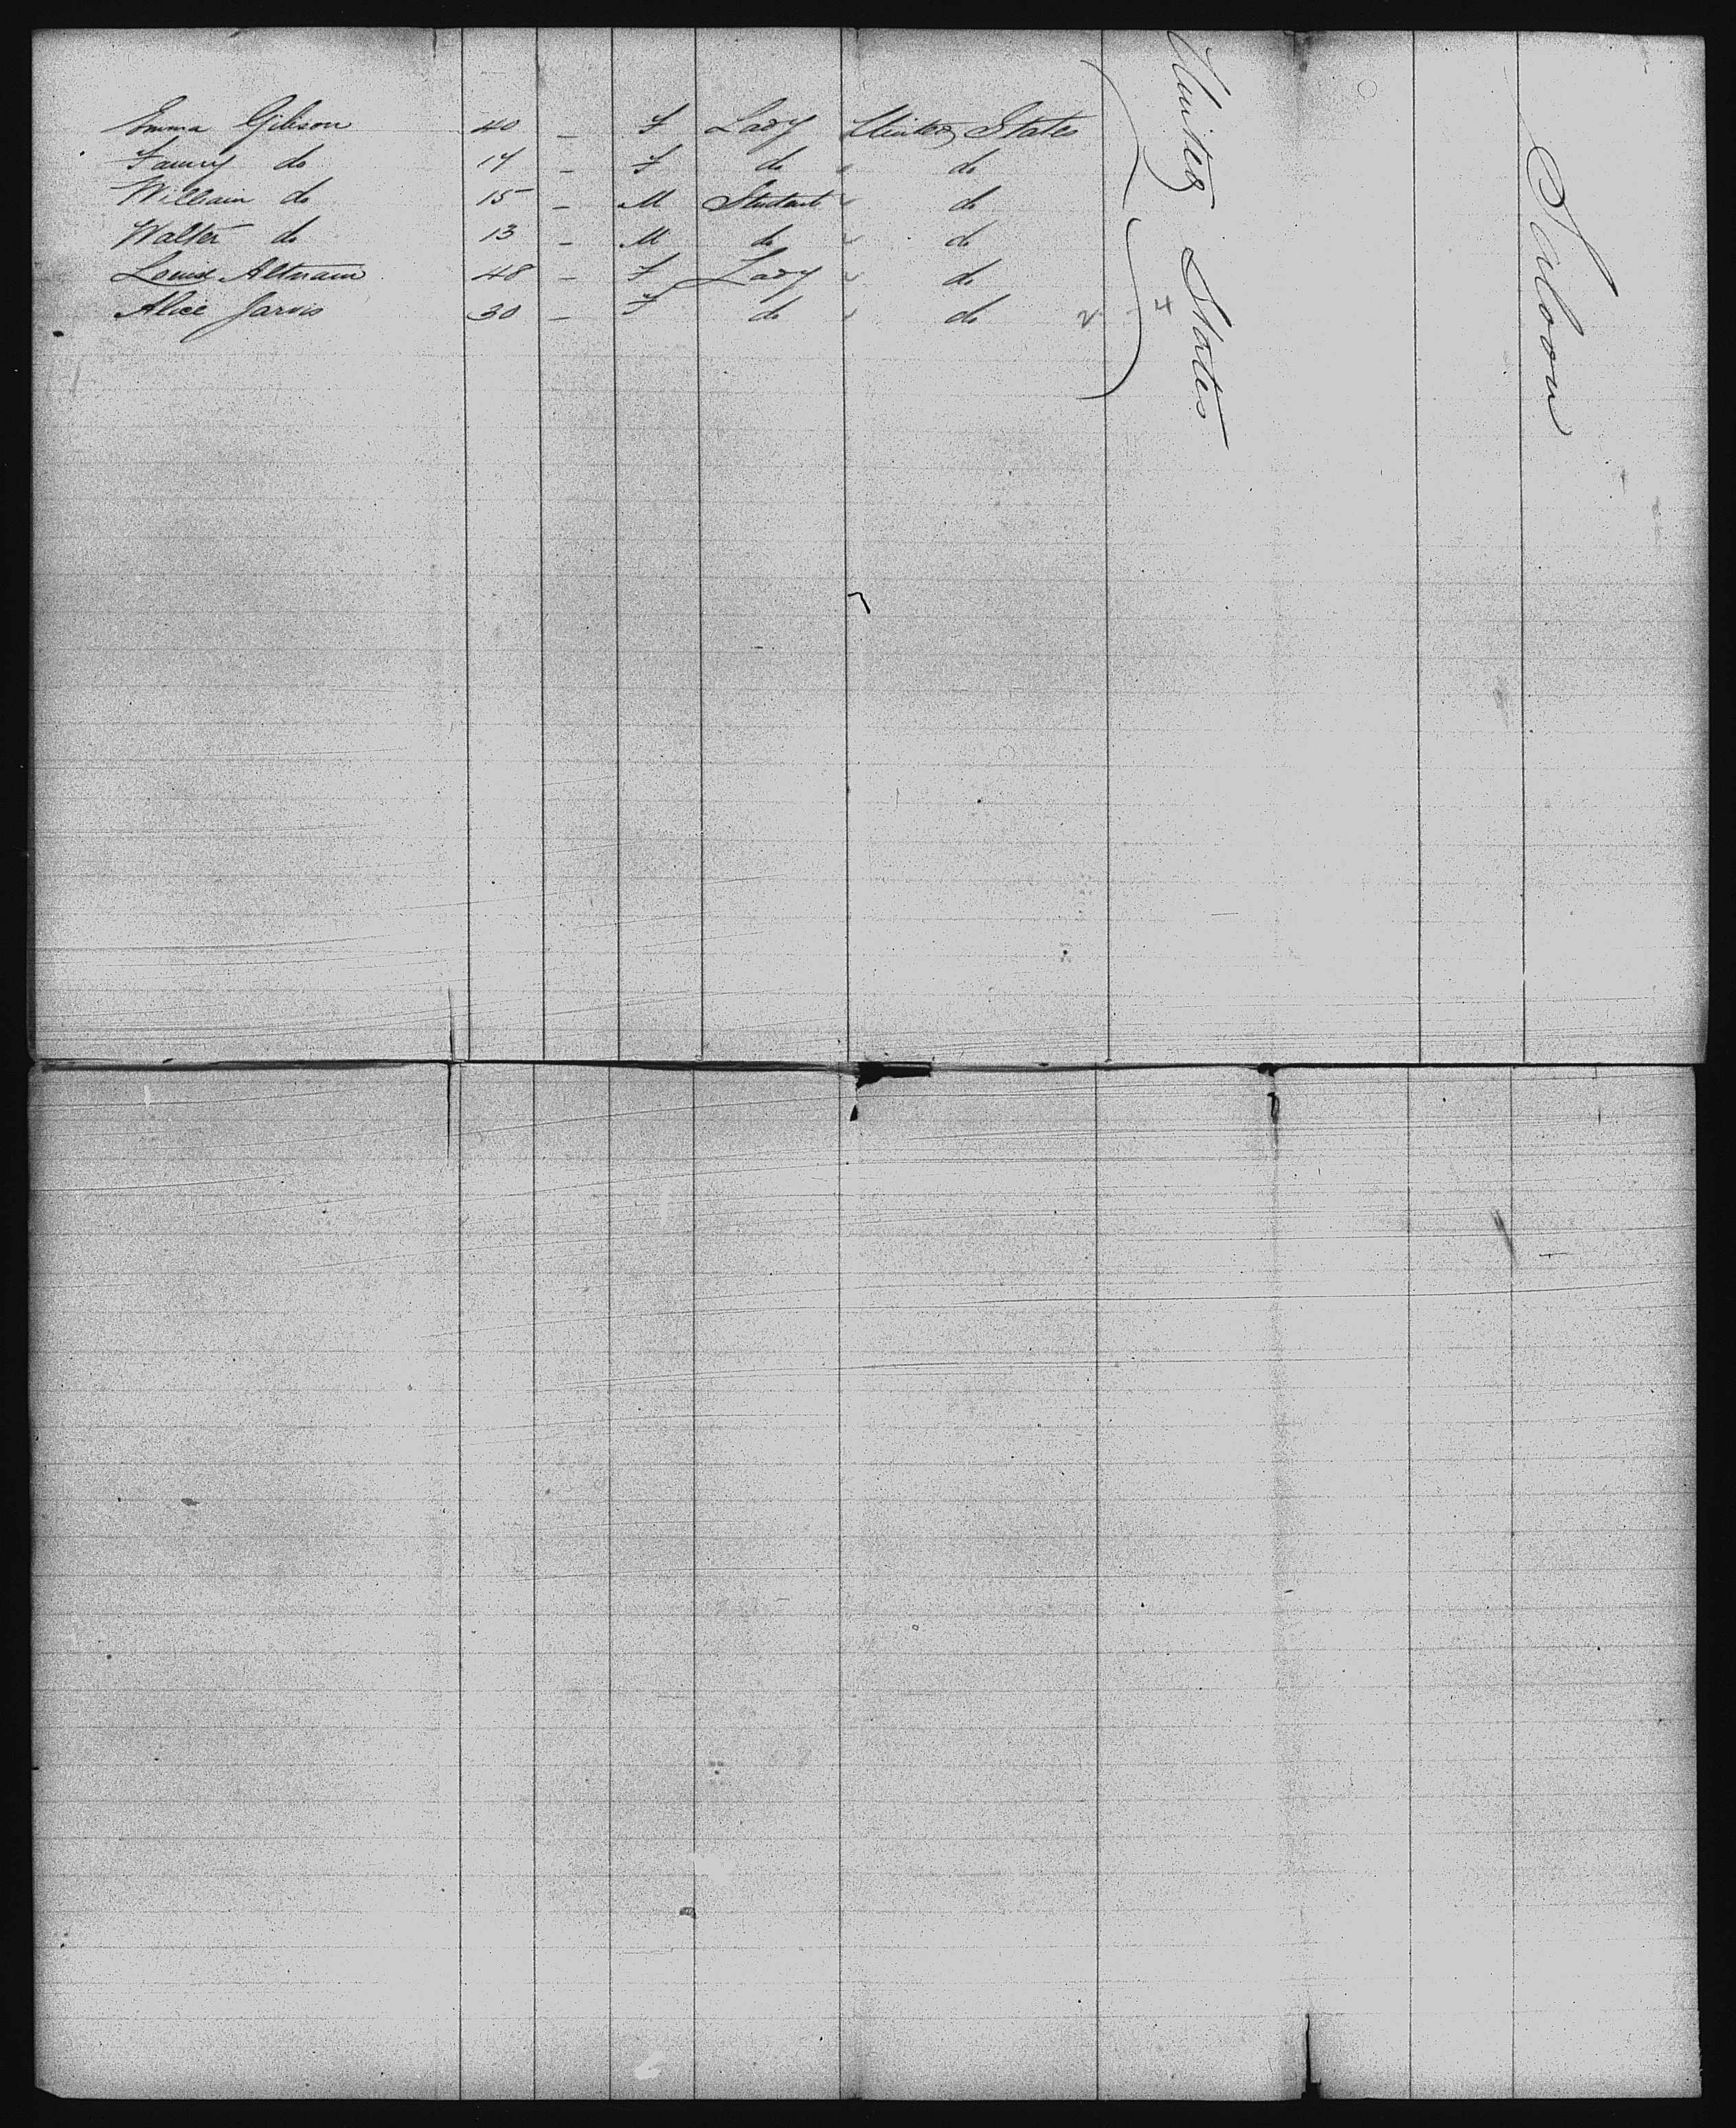 Emma Gibson 40 – F Lady United States
Fanny do 17 – F do " do
William do 15 – M Student " do
Walter do 13 – M do " do
Louise Altmann 48 – F Lady " do
Alice Jarvis 30 – F do " do 2 4
United States
Saloon